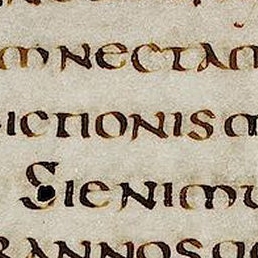 mnectam
ictionism
Sienimu
rannosq